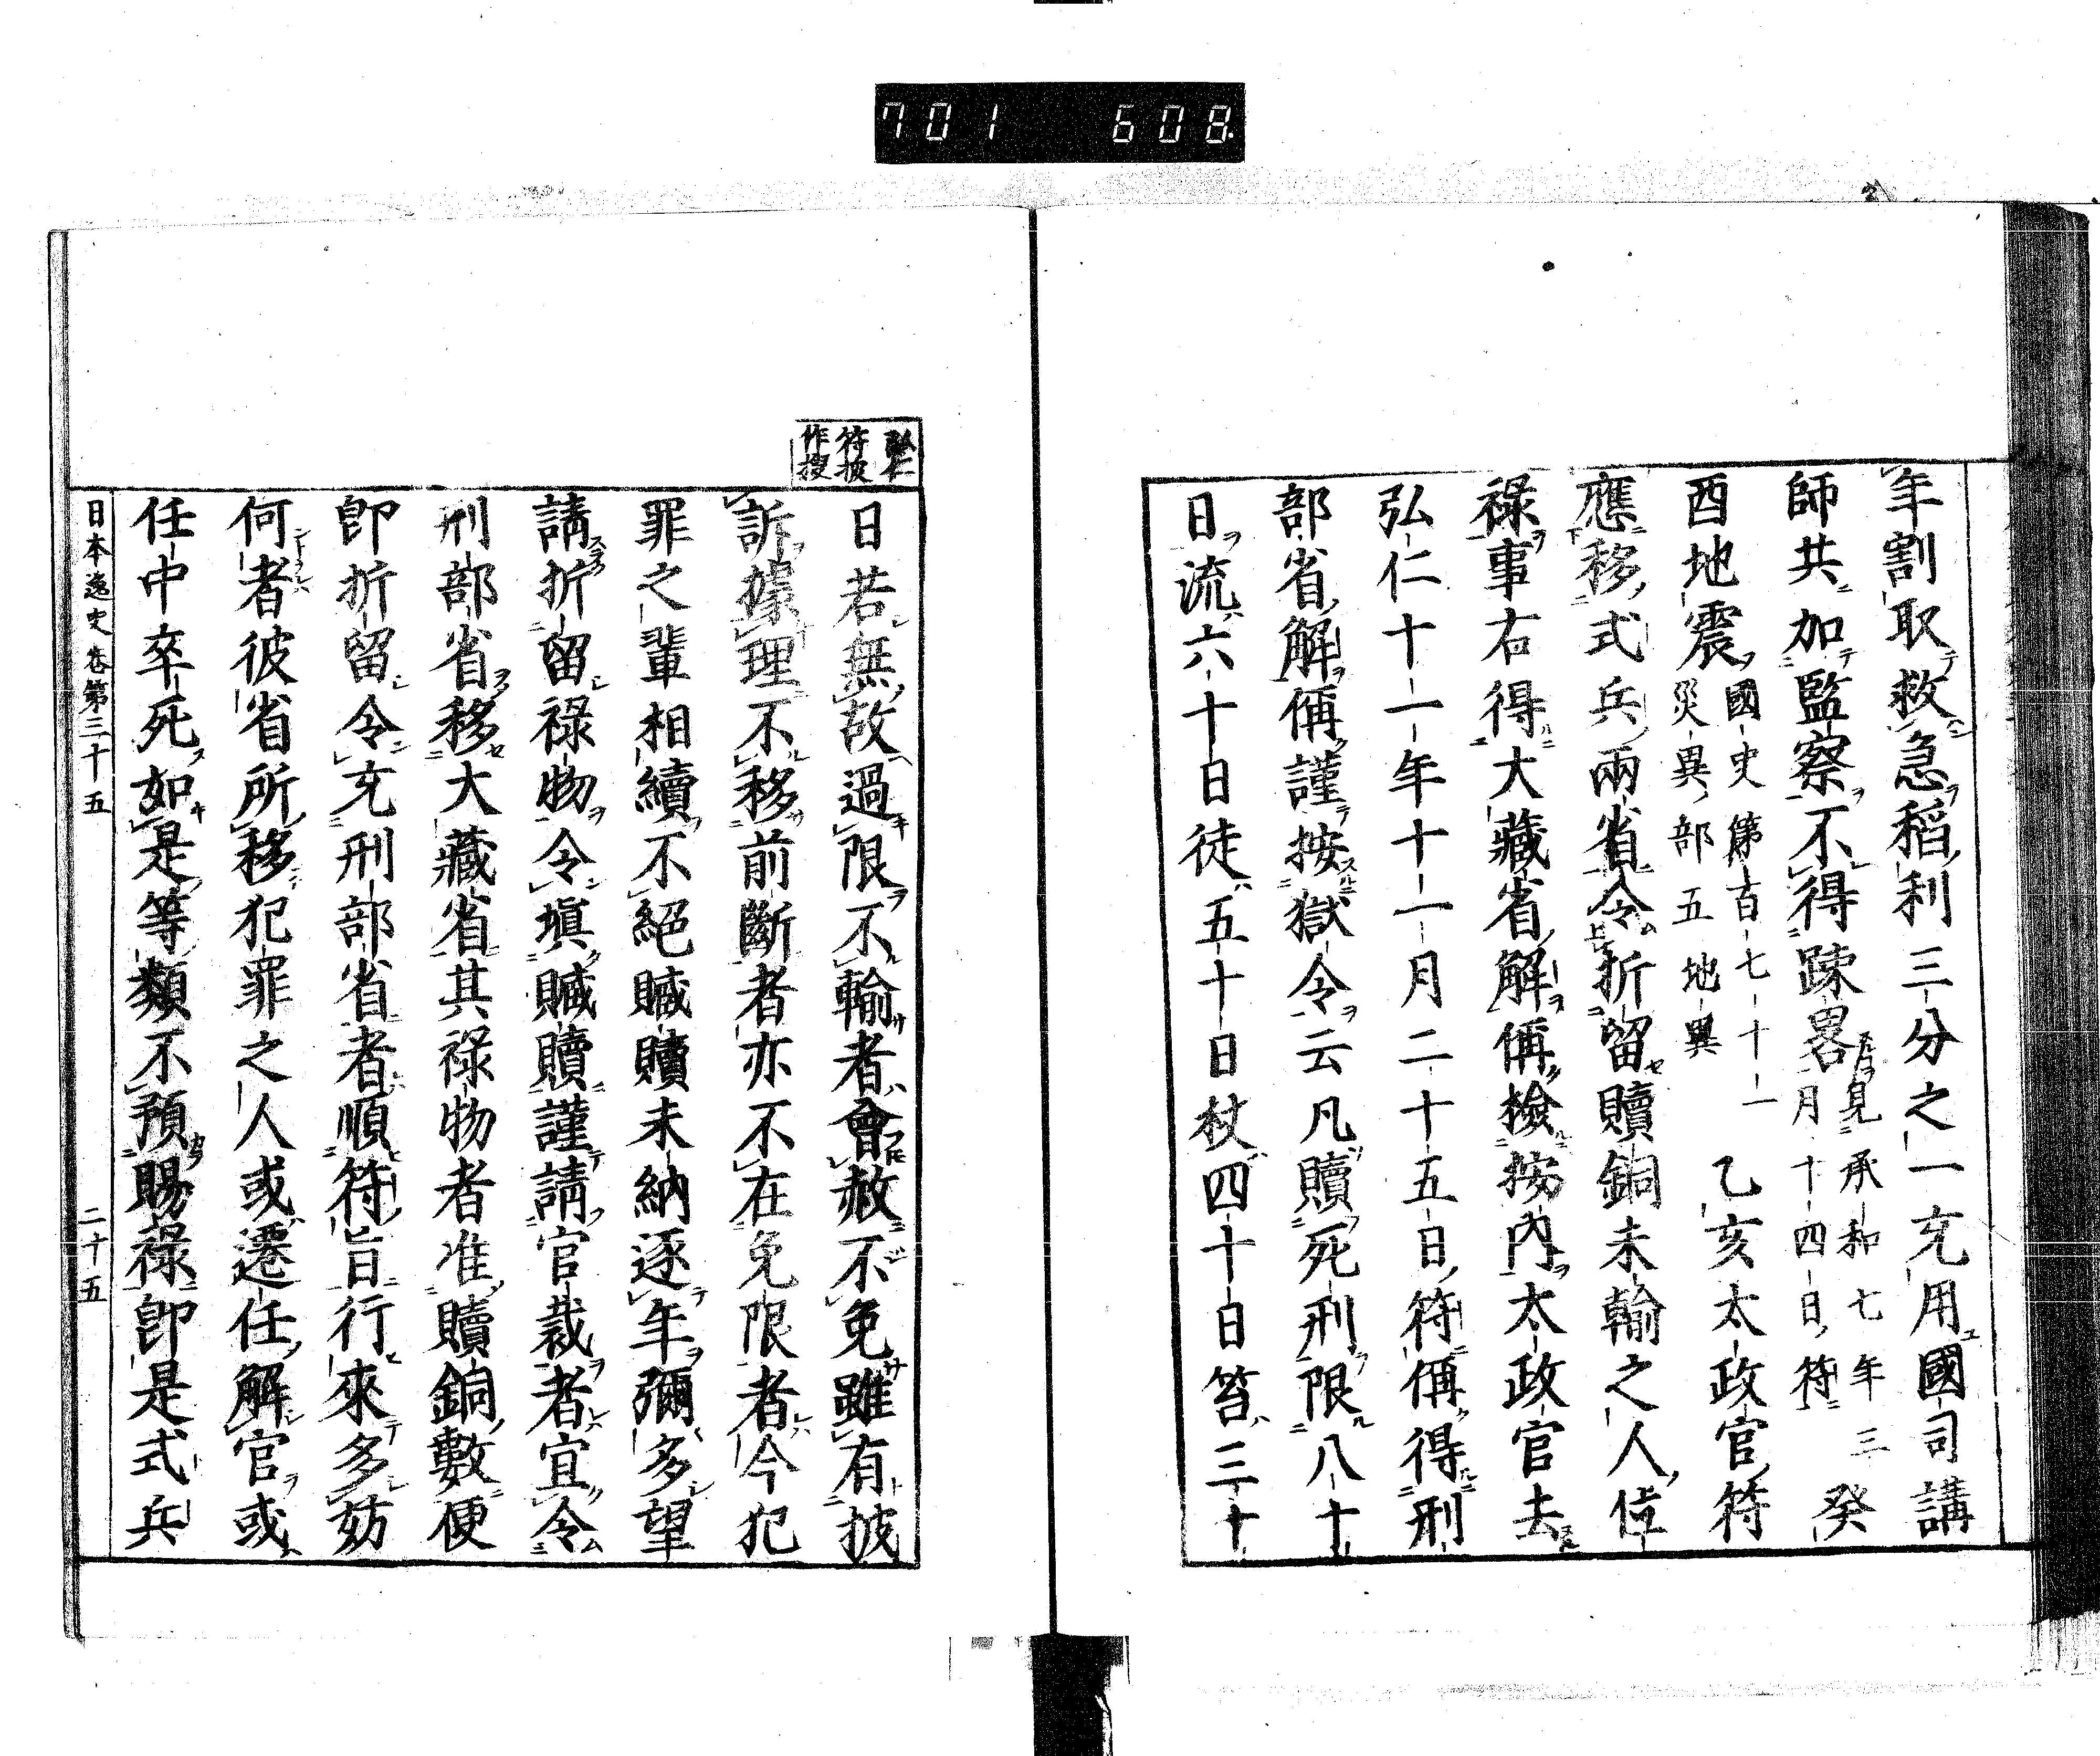 701 608
年割取救急稻利三分之一充用國司講
師共加監察不得踈畧見承和七年三月十四日符癸
酉地震國史第百七十一災異部五地異乙亥太政官符
應移式兵兩省令折留贖銅未輸之人位
祿事右得大藏省解偁檢按內太政官去
弘仁十一年十一月二十五日符偁得刑
部省解偁謹按獄令云凡贖死刑限八十
日流六十日徒五十日杖四十日笞三十
弘仁
符披
作搜
日若無故過限不輸者會赦不免雖有披
訴據理不移前斷者亦不在免限者今犯
罪之輩相續不絕贓贖未納逐年彌多望
請折留祿物令塡贓贖謹請官裁者宜令
刑部省移大藏省其祿物者准贖銅數便
卽折留令充刑部省者順符旨行來多妨
何者彼省所移犯罪之人或遷任解官或
任中卒死如是等類不預賜祿卽是式兵
日本逸史卷第三十五 二十五